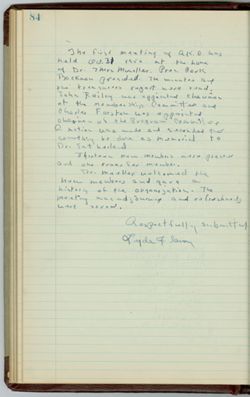 84
The first meeting of A.K.D. was
held Oct. 31 at the home
of Dr. Thor Mueller. Pres.
presided. The minutes and
the treasurers report were read.
John Bailey was appointed chairman
of the membership committee and
Charles was appointed
chairman of the Program Committee.
A motion was made and seconded that
something be done as memorial to
Dr. Sutherland.
new members were present
and one transfer member.
Dr. Mueller welcomed the
new members and gave a
history of the organization. The
meeting was adjourned and refreshments
were served.
Respectfully submitted